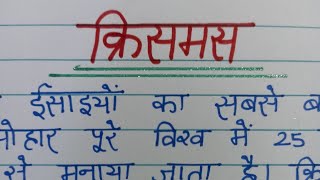 क्रिसमस
ईसाइयों का सबसे
पूरे विश्व में 25
से मनाया जाता है। क्रि